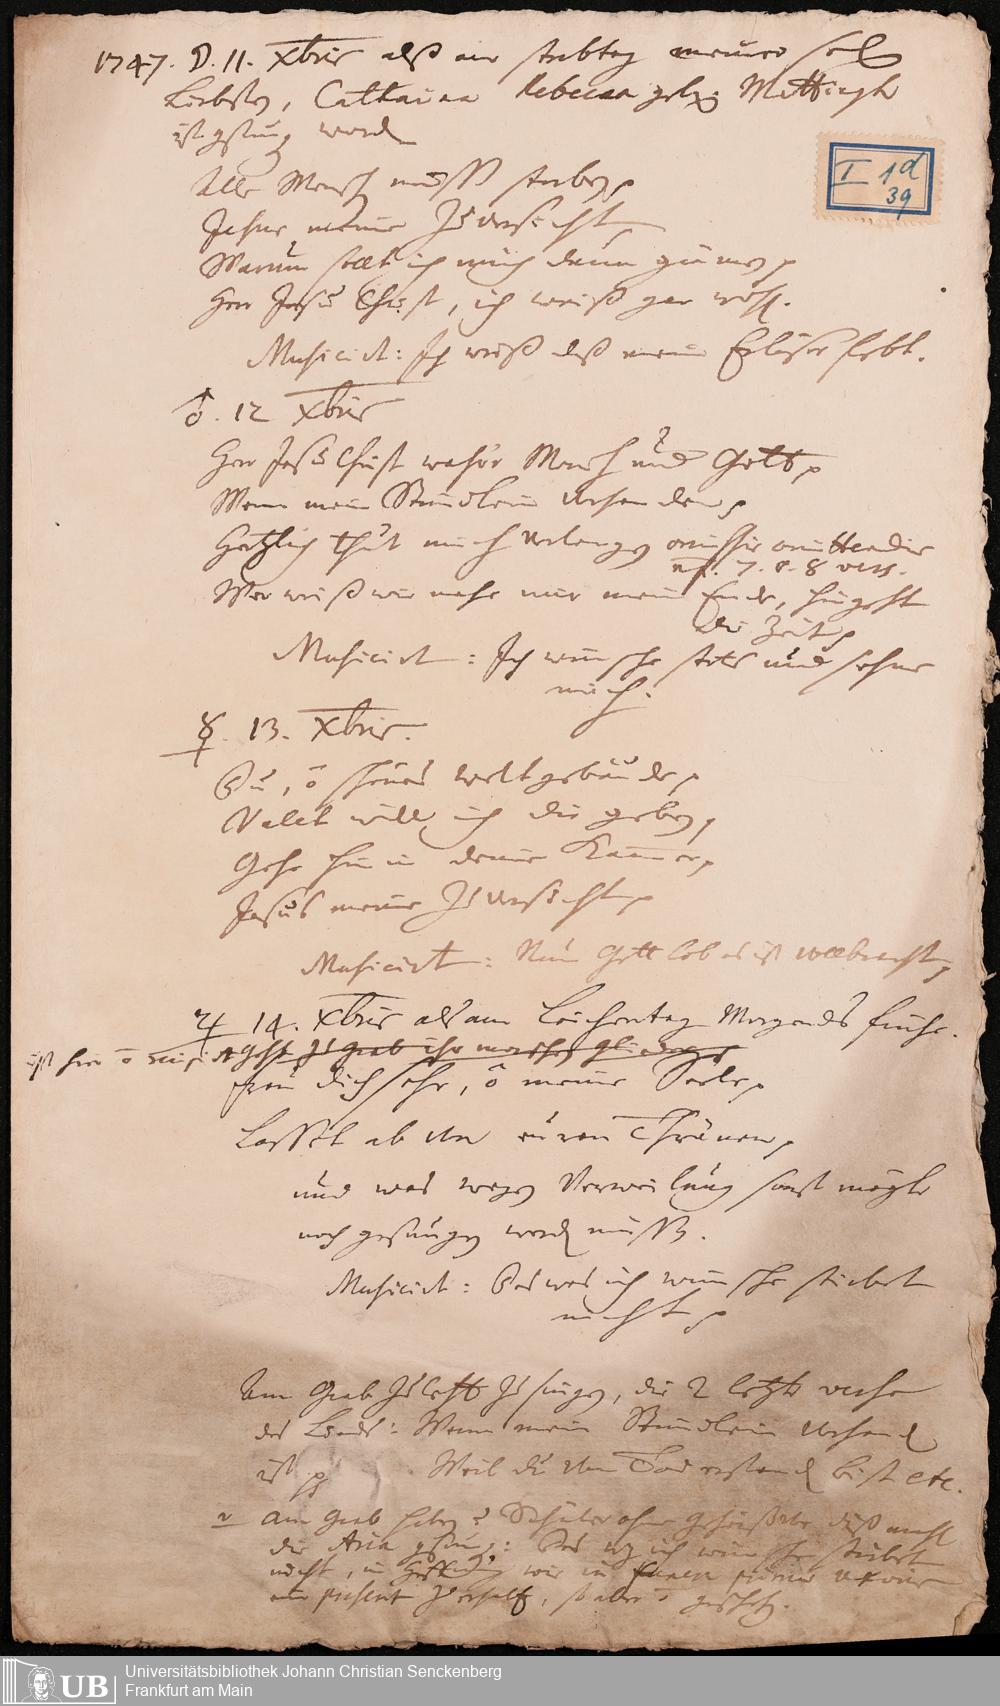 1747. D. 11. Xbris alß am sterbtag meiner sel.
Liebsten, Catharina Rebecca geb.
ist gesung worden
Alle Mensch müssen sterben p
Jesus meine Zuversicht p
Warum sollt ich mich denn grämen p
Herr Jesu Christ, ich weiß gar wohl.
Musicirt: Ich weiß daß mein Erlöser lebt.
♂. 12 Xbris
Herr Jesu Christ wahr Mensch und Gott p
Wenn mein Stündlein vorhanden p
Hertzlich thut mich verlangen omissis omittendis
7. u. 8 vers.
Wer weiß wie nahe mir mein Ende, hingeht
die Zeit p
Musicirt: Ich wünsche stets und sehne
mich.
☿. 13. Xbris.
Du, o schönes Weltgebäude p
Valet will ich dir geben p
Gehe hin in deine Kammer p
Jesus meine Zuversicht p
Musicirt: Nun Gott lob es ist vollbracht p
♃ 14. Xbris als am Leichentag Morgends frühe.
ist hier Geht zu grab ihr
Freu dich sehr, o meine Seele p
Lasset ab von euren Thränen p
und was wegen Verweilung sonst mögte
noch gesungen werden müssen.
Musicirt: Das was ich wünsche stirbet
nicht p
Am Grab zuletzt zu singen, die 2 letzte verse
des Lieds: Wenn mein Stündlein vorhand
ist p Weil du vom Tod erstanden bist etc.
am Grab haben Schüler ohne Geheiß
die Aria gesung: Das was ich wünsche stirbet
nicht, in Hoffnung, wie in
ein present zu erhalten, so aber geschehen.
I 1d
39
Universitätsbibliothek Johann Christian Senckenberg
Frankfurt am Main
UB